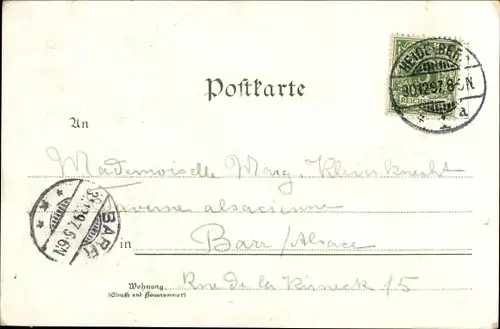 HEIDELBERG
30.12.97.8-9N.
d
REICHSPOST
Postkarte
An
Mademoiselle Marg. Kleinknecht
Taverne alsacienne
in Barr / Alsace
Wohnung Rue de la Kirneck 15
(Straße und Hausnummer)
BARR
31.12.97.5-6N.